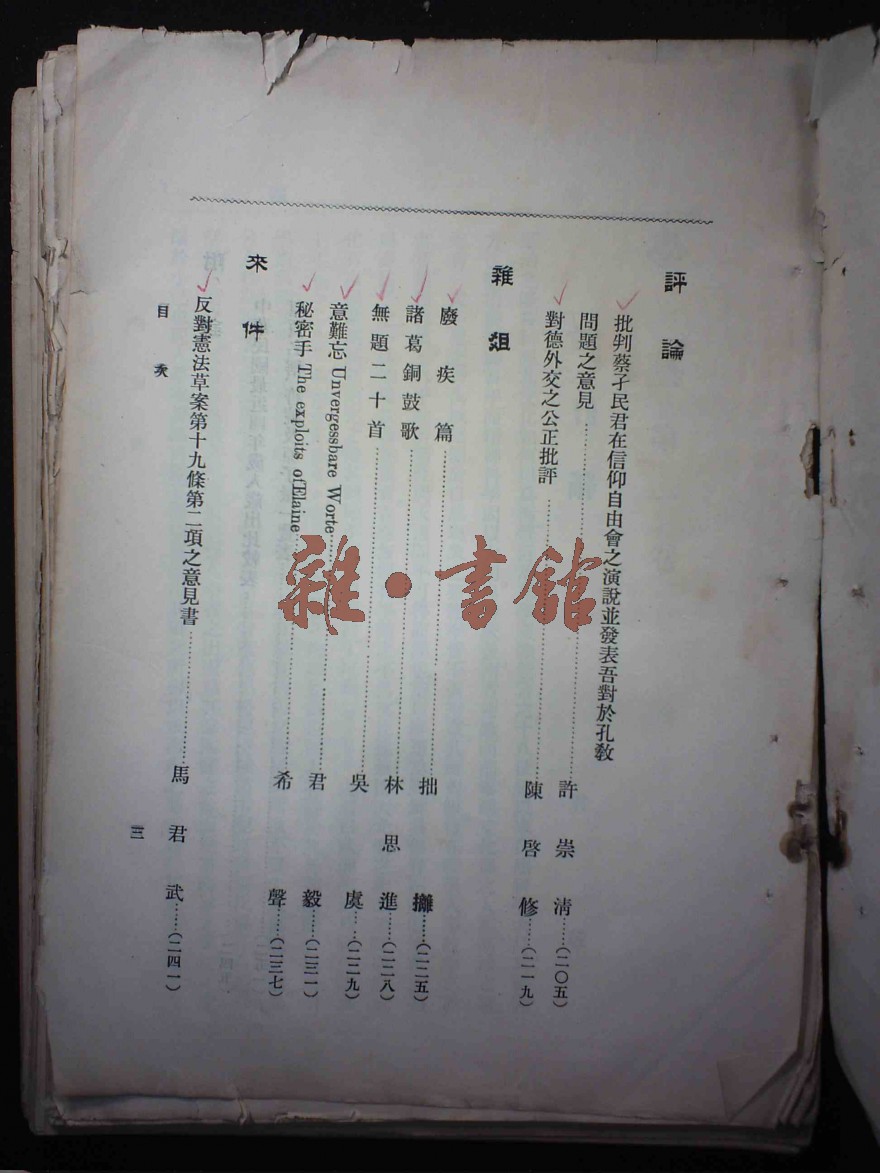 評論
批判蔡孑民君在信仰自由會之演說並發表吾對於孔教
問題之意見……許崇清……(二〇五)
對德外交之公正批評……陳啓修……(二一九)
雜俎
廢疾篇……拙攡……(二二五)
諸葛銅鼓歌……林思進……(二二八)
無題二十首……吳虞……(二二九)
意難忘 Unvergessbare Worte……君毅……(二三一)
秘密手 The exploits of Elaine……希聲……(二三七)
來件
反對憲法草案第十九條第二項之意見書……馬君武……(二四一)
目次
三
雜·書館